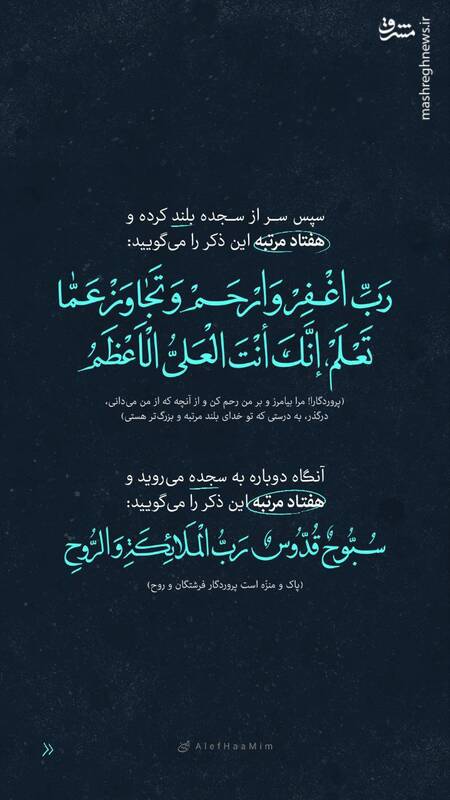 مشرق
mashreghnews.ir
سپس سر از سجده بلند کرده و
هفتاد مرتبه این ذکر را می‌گویید:
رَبِّ اغْفِرْ وَارْحَمْ وَتَجَاوَزْ عَمَّا
تَعْلَمْ، إِنَّكَ أَنْتَ الْعَلِيُّ الْأَعْظَمُ
(پروردگارا! مرا بیامرز و بر من رحم کن و از آنچه که از من می‌دانی،
درگذر، به درستی که تو خدای بلند مرتبه و بزرگ‌تر هستی)
آنگاه دوباره به سجده می‌روید و
هفتاد مرتبه این ذکر را می‌گویید:
سُبُّوحٌ قُدُّوسٌ رَبُّ الْمَلَائِكَةِ وَالرُّوحِ
(پاک و منزّه است پروردگار فرشتگان و روح)
AlefHaaMim